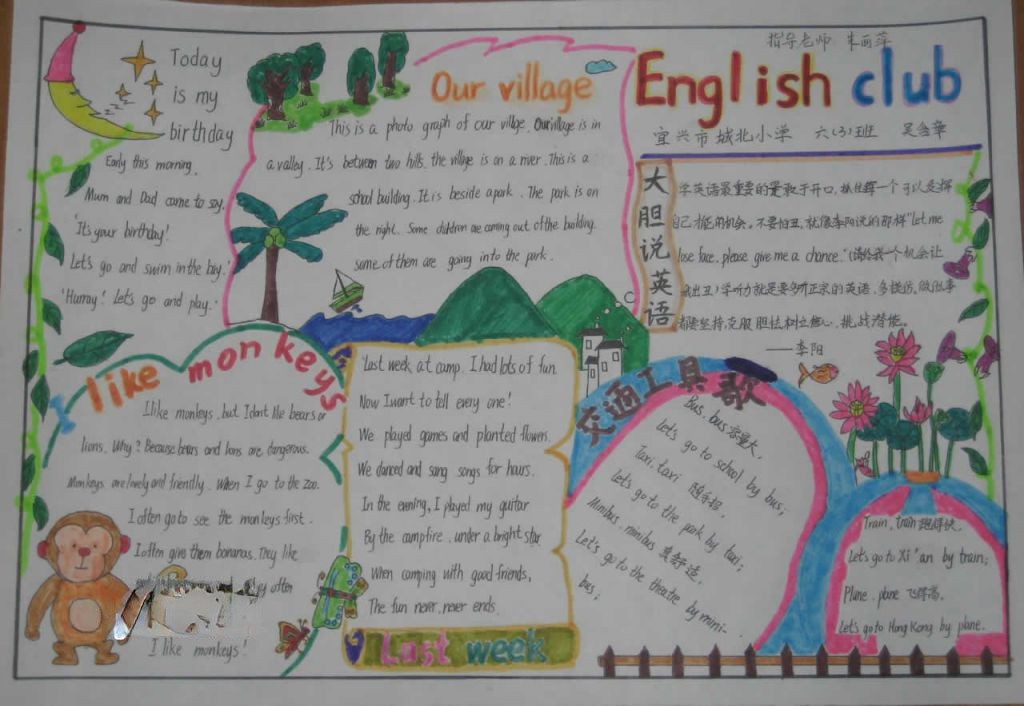 指导老师 朱丽萍
English club
宜兴市城北小学 六(3)班 吴含章
Today
is my
birthday
Early this morning,
Mum and Dad come to say,
'It's your birthday!
Let's go and swim in the bay.'
'Hurray! Let's go and play.'
Our village
This is a photo graph of our village. Our village is in
a valley. It's between two hills. the village is on a river. This is a
school building. It is beside a park. The park is on
the right. Some children are coming out of the building.
some of them are going into the park.
大胆说英语
学英语最重要的是敢于开口,抓住每一个可以发挥
自己才能的机会。不要怕丑,就像李阳说的那样"Let me
lose face, please give me a chance."(请给我一个机会让
我出丑)学听力就是要多听正宗的英语,多模仿。做什事
都要坚持,克服胆怯,树立信心,挑战潜能。
——李阳
I like monkeys
I like monkeys, but I don't like bears or
lions. Why? Because bears and lions are dangerous.
Monkeys are lovely and friendly. When I go to the zoo.
I often go to see the monkeys first.
I often give them bananas. They like
often
I like monkeys!
Last week at camp. I had lots of fun.
Now I want to tell every one!
We played games and planted flowers.
We danced and sang songs for hours.
In the evening, I played my guitar
By the campfire, under a bright star
When camping with good friends,
The fun never, never ends.
Last week
交通工具歌
Bus, bus 容量大,
Let's go to school by bus;
Taxi, taxi
Let's go to the park by taxi;
Minibus, minibus 真舒适,
Let's go to the theatre by mini-
bus;
Train, train 跑得快,
Let's go to Xi'an by train;
Plane, plane 飞得高,
Let's go to Hong Kong by plane.